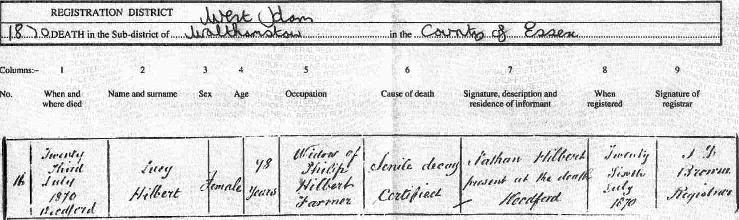 REGISTRATION DISTRICT West Ham
1870 DEATH in the Sub-district of Walthamstow in the County of Essex
Columns:- 1 2 3 4 5 6 7 8 9
No. When and where died Name and surname Sex Age Occupation Cause of death Signature, description and residence of informant When registered Signature of registrar
16
Twenty
Third
July
1870
Woodford
Lucy
Hilbert
Female
78
Years
Widow of
Philip
Hilbert
Farmer
Senile decay
Certified
Nathan Hilbert
present at the death
Woodford
Twenty
July
1870
Registrar